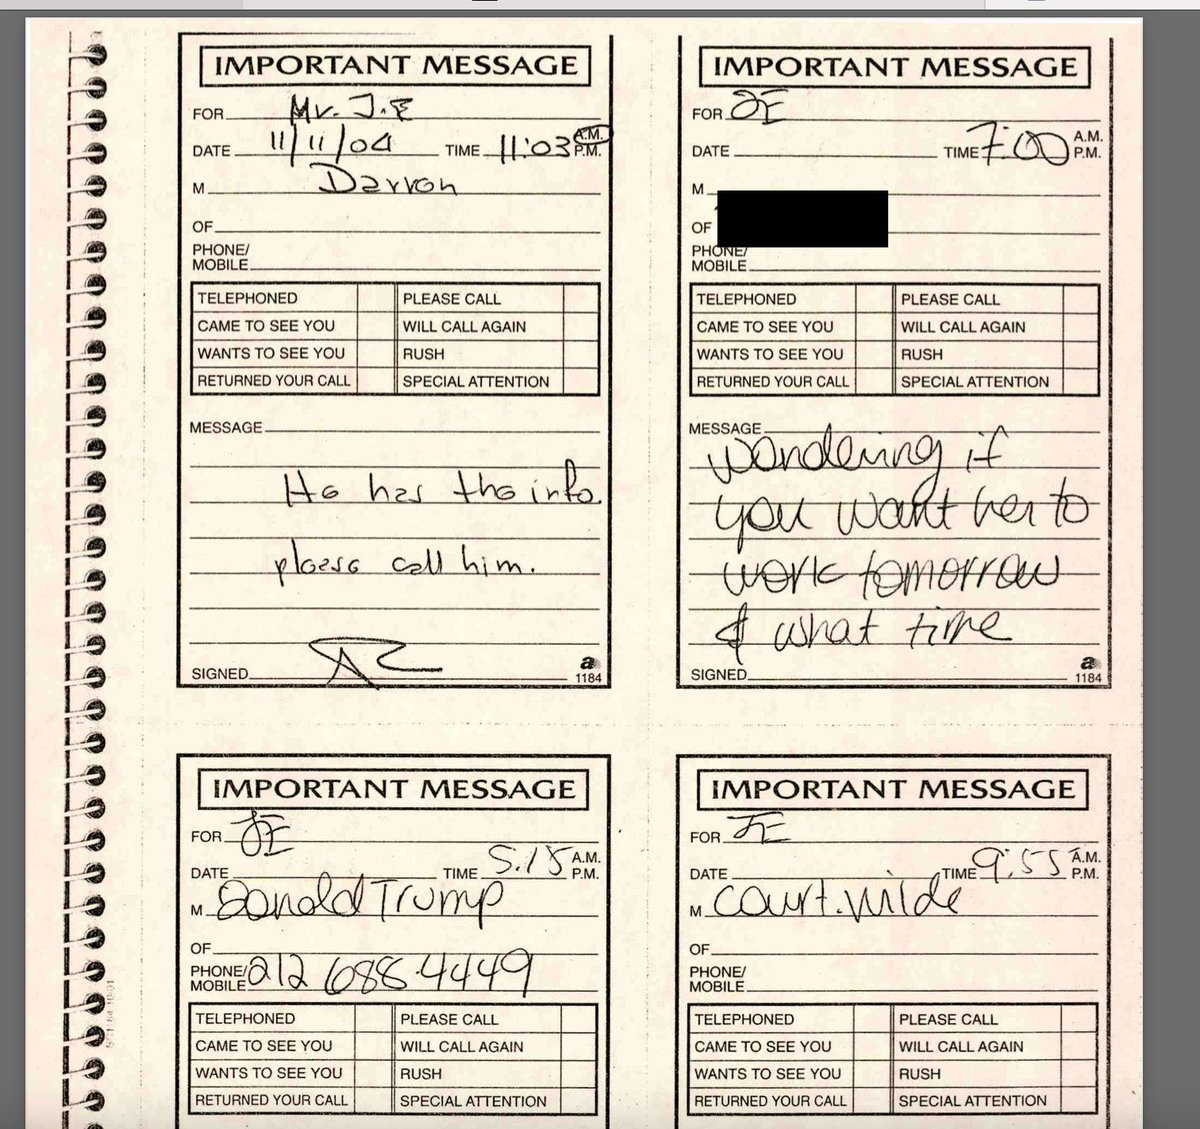 IMPORTANT MESSAGE
FOR Mr. J.E
DATE 11/11/04 TIME 11:03 A.M. P.M.
M Darron
OF
PHONE/
MOBILE
TELEPHONED PLEASE CALL
CAME TO SEE YOU WILL CALL AGAIN
WANTS TO SEE YOU RUSH
RETURNED YOUR CALL SPECIAL ATTENTION
MESSAGE
He has the info.
please call him.
SIGNED
a
1184
IMPORTANT MESSAGE
FOR JE
DATE TIME 7:00 A.M. P.M.
M
OF
PHONE/
MOBILE
TELEPHONED PLEASE CALL
CAME TO SEE YOU WILL CALL AGAIN
WANTS TO SEE YOU RUSH
RETURNED YOUR CALL SPECIAL ATTENTION
MESSAGE
wondering if
you want her to
work tomorrow
& what time
SIGNED
a
1184
IMPORTANT MESSAGE
FOR JE
DATE TIME 5:15 A.M. P.M.
M Donald Trump
OF
PHONE/
MOBILE 212 688-4449
TELEPHONED PLEASE CALL
CAME TO SEE YOU WILL CALL AGAIN
WANTS TO SEE YOU RUSH
RETURNED YOUR CALL SPECIAL ATTENTION
IMPORTANT MESSAGE
FOR JE
DATE TIME 9:55 A.M. P.M.
M Court. Wilde
OF
PHONE/
MOBILE
TELEPHONED PLEASE CALL
CAME TO SEE YOU WILL CALL AGAIN
WANTS TO SEE YOU RUSH
RETURNED YOUR CALL SPECIAL ATTENTION